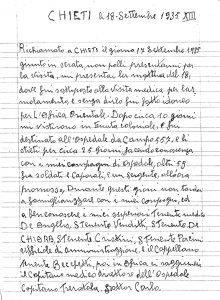 CHIETI li 18-Settembre 1935 XIII
Richiamato a CHIETI il giorno 17 Settembre 1935
giunto in serata non potei presentarmi per
la visita, mi presentai la mattina del 18,
dove fui sottoposto alla visita medica per l'ar
ruolamento e senza dirlo fui fatto idoneo
per l'Africa Orientale. Dopo circa 10 giorni
mi vestirono in tenuta coloniale, e fui
destinato all'Ospedale da Campo 457, e lì
stetti per circa 25 giorni, facendo conoscenza
con i miei compagni di Ospedale, oltre 55
fra soldati e Caporali, un sergente, allora
promosso. Durante questi giorni non tardai
a famigliarizzare con i miei compagni, ed
a far conoscere i miei superiori Tenente medico
De Angelis, STenente Venditti, STenente De
CHIARA, STenente Cristini, STenente Pacini
ufficiale di amministrazione, e il Cappellano
Tenente Beccafatti, poi in Africa ci raggiunse
il Capitano medico direttore dell'Ospedale
Capitano Taratola, Dottor Carlo.